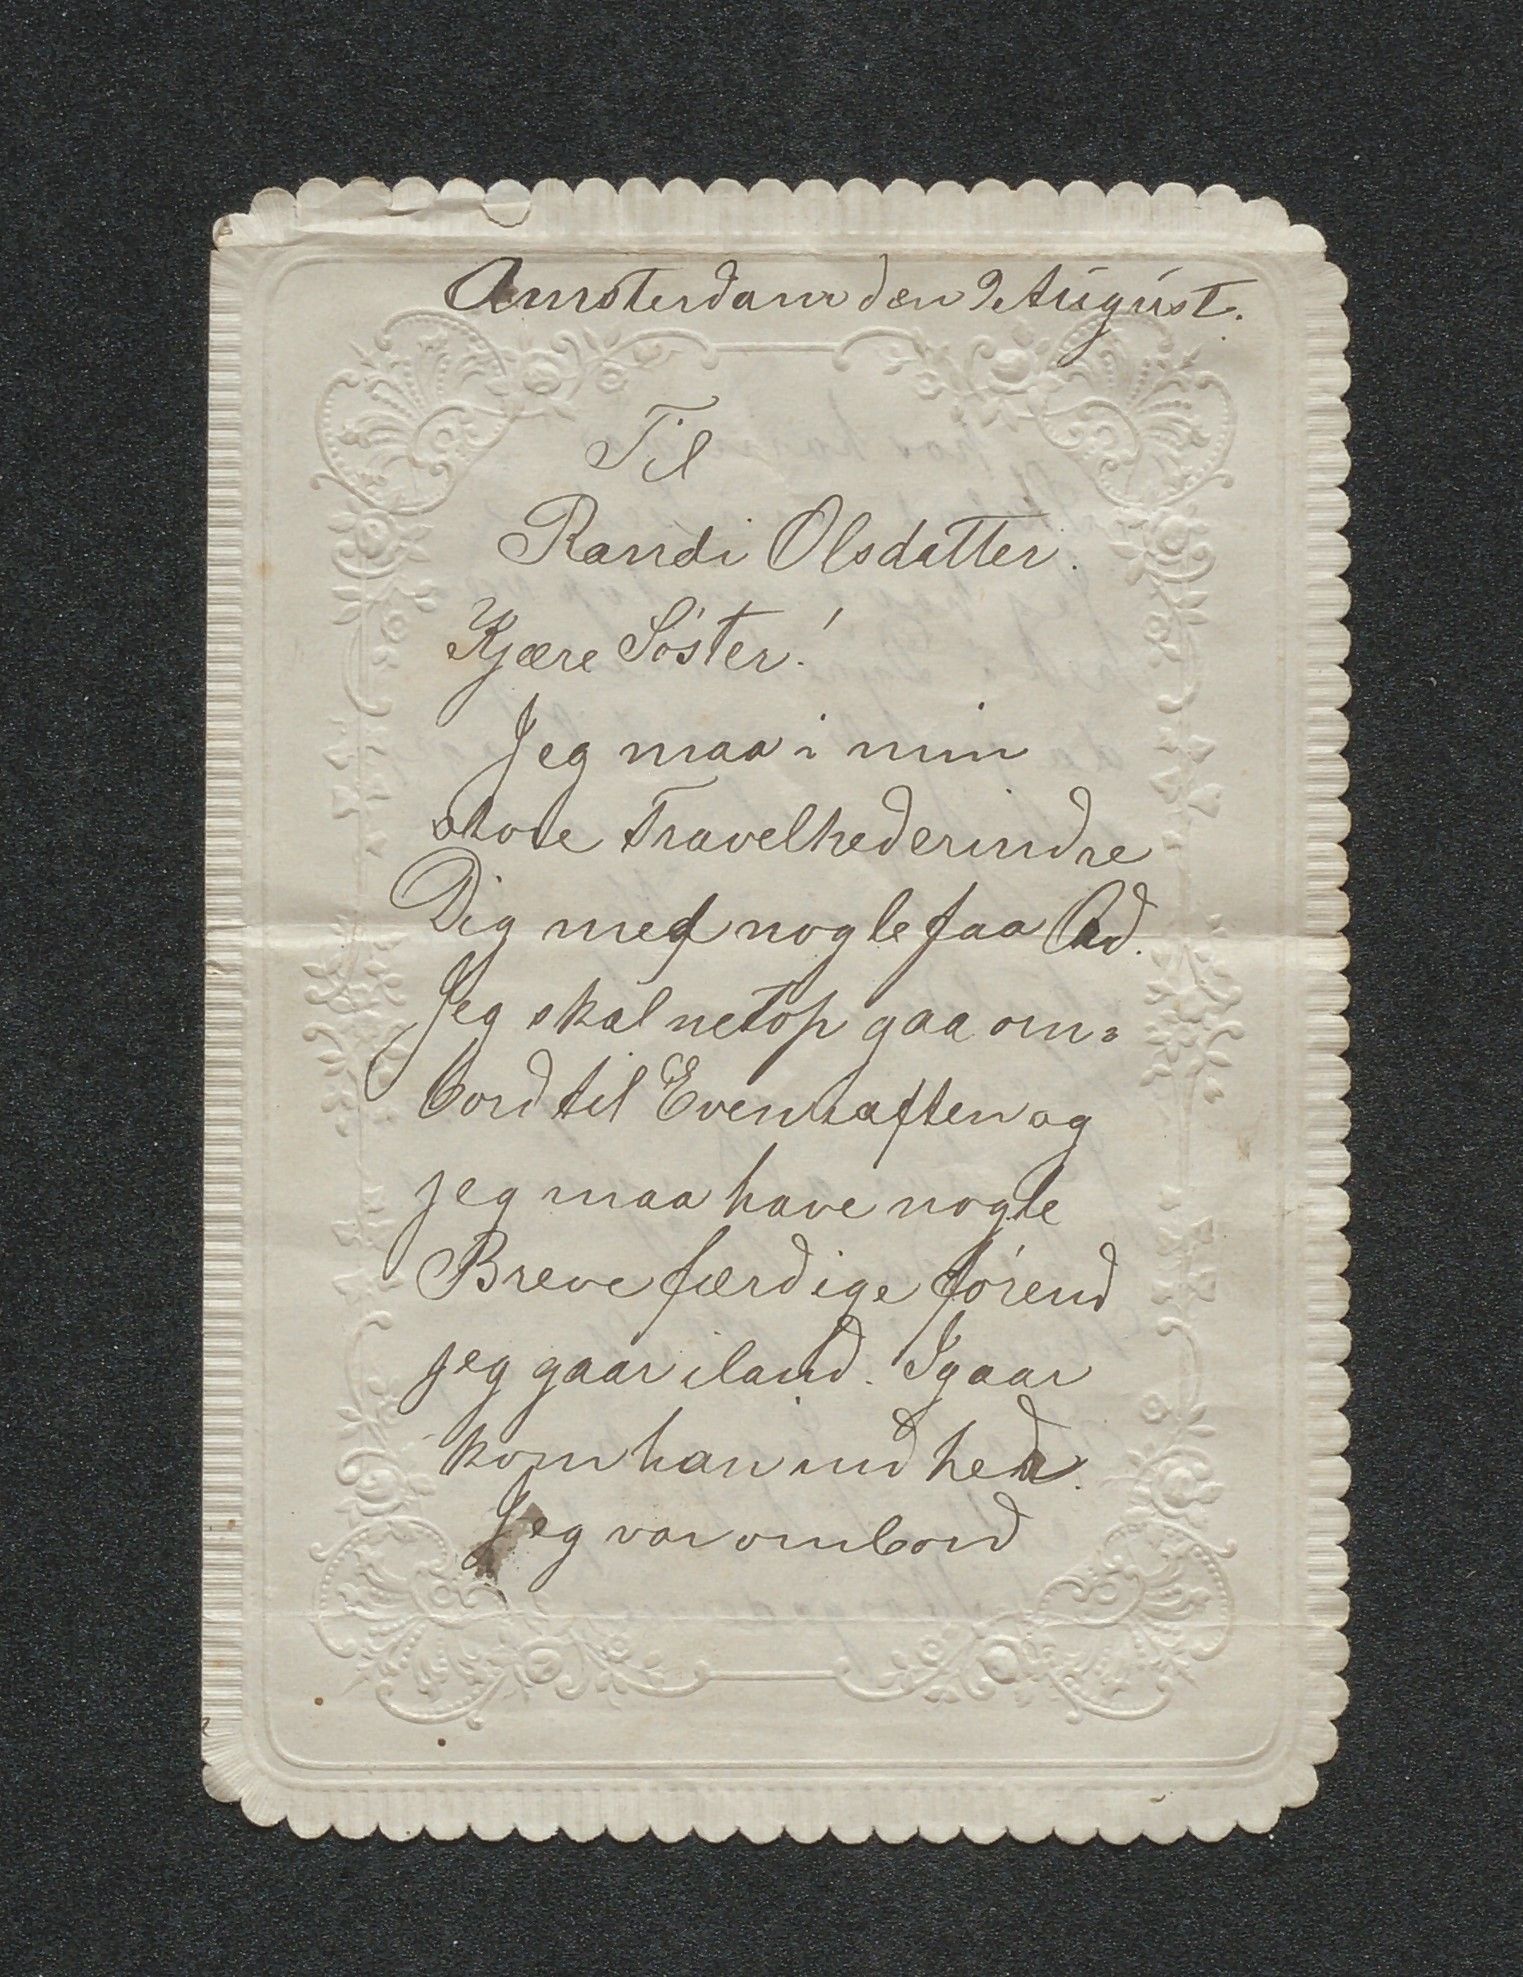 Amsterdam den 9 August.
Til
Randi Olsdatter.
Kjære Söster!
Jeg maa i min
store Travelhed erindre
Dig med nogle faa Ord.
Jeg skal netop gaa om=
bord til Even iaften og
jeg maa have nogle
Breve færdige förend
jeg gaar iland. Igaar
kom han ind her.
Jeg var ombord